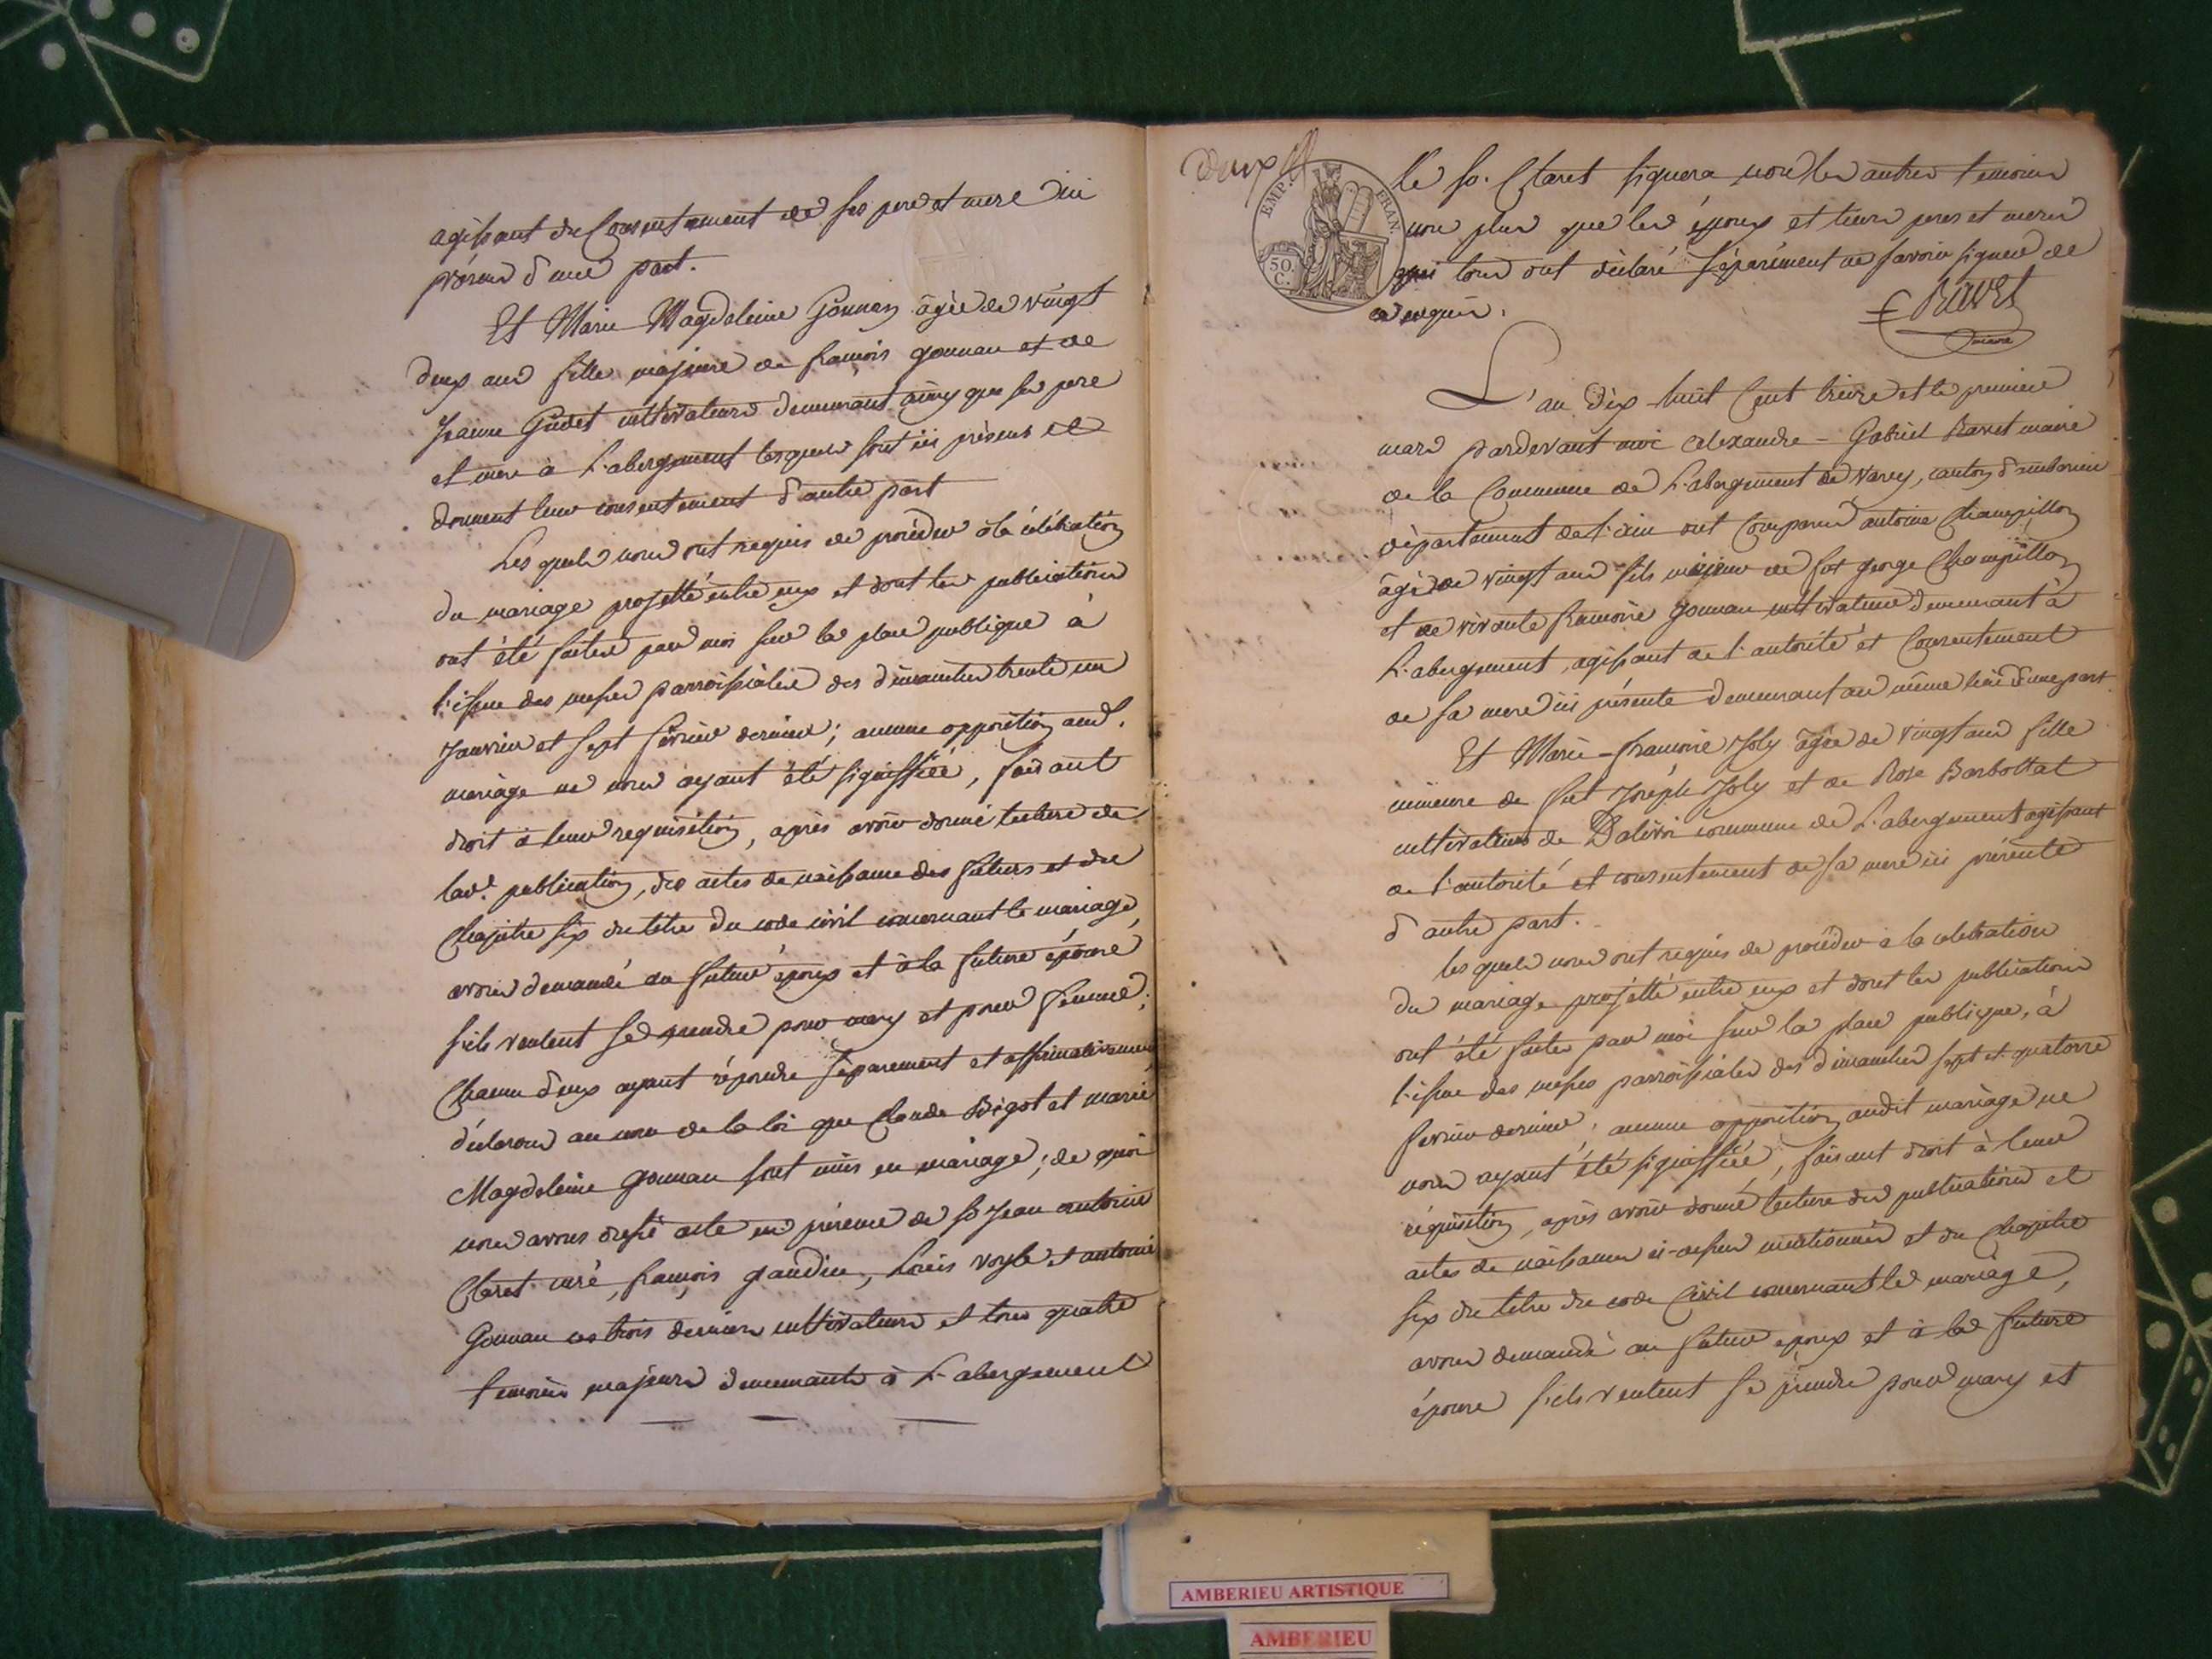 agissant du Consentement de ses pere et mere ici
présens d'une part.
Et Marie Magdeleine Gonnan âgée de vingt
deux ans fille majeure de françois gonnan et de
Jeanne Gudet cultivateurs demeurant ainsy que ses pere
et mere à L'abergement lesquels sont ici présens et
donnent leur consentement d'autre part
Les quels nous ont requis de procéder à la célébration
du mariage projetté entre eux et dont les publications
ont été faites par moi sur la place publique à
l'issue des messes parroissiales des dimanches trente un
Janvier et sept février dernier; aucune opposition aud.
mariage ne nous ayant été signiffiée, faisant
droit à leur requisition, après avoir donné lecture de
lad.e publication, des actes de naissance des futurs et du
Chapitre six du titre du code civil concernant le mariage,
avons demandé au futur époux et à la future épouse
s'ils veulent se prendre pour mary et pour femme;
Chacun d'eux ayant répondu séparement et affirmativement
déclarons au nom de la loi que Claude Bigot et marie
Magdeleine gonnan sont unis en mariage; de quoi
nous avons dressé acte en présence de Sr. Jean antoine
Claret curé, françois gaudin, Louis voyle et antoine
Gonnan ces trois derniers cultivateurs et tous quatre
temoins majeurs demeurants à L'abergement
deux
EMP. FRAN.
50 C.
le Sr. Claret signera non les autres temoins
non plus que les époux et leurs peres et meres
qui tous ont déclaré séparément ne savoir signer de
ce requis.
Ravet
maire
L'an dix huit Cent treize et le premier
mars pardevant moi alexandre-Gabriel Ravet maire
de la Commune de L'abergement de Varey, canton d'amberieu
département de l'ain ont Comparus antoine Champillon
âgé de vingt ans fils mineur de fut george Champillon
et de vivante françoise gonnan cultivateur demeurant à
L'abergement, agissant de l'autorité et Consentement
de sa mere ici présente demeurant au même lieu d'une part
Et Marie-françoise Joly âgée de vingt ans fille
mineure de fut Joseph Joly et de Rose Barbottat
cultivateurs de Dalivoi commune de L'abergement agissant
de l'autorité et consentement de sa mere ici présente
d'autre part.
les quels nous ont requis de procéder à la celebration
du mariage projetté entre eux et dont les publications
ont été faites par moi sur la place publique, à
l'issue des messes parroissiales des dimanches sept et quatorze
fevrier dernier; aucune opposition audit mariage ne
nous ayant été signiffiée, faisant droit à leur
réquisition, après avoir donné lecture des publications et
actes de naissance ci-dessus mentionnés et du Chapitre
six du titre du code Civil concernant le mariage,
avons demandé au futur époux et à la future
épouse s'ils veulent se prendre pour mary et
AMBERIEU ARTISTIQUE
AMBERIEU